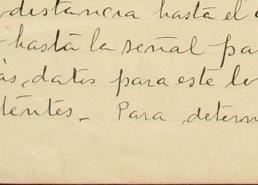 distancia hasta el
hasta la señal pa
ás, datos para este lo
tentes_ Para determ